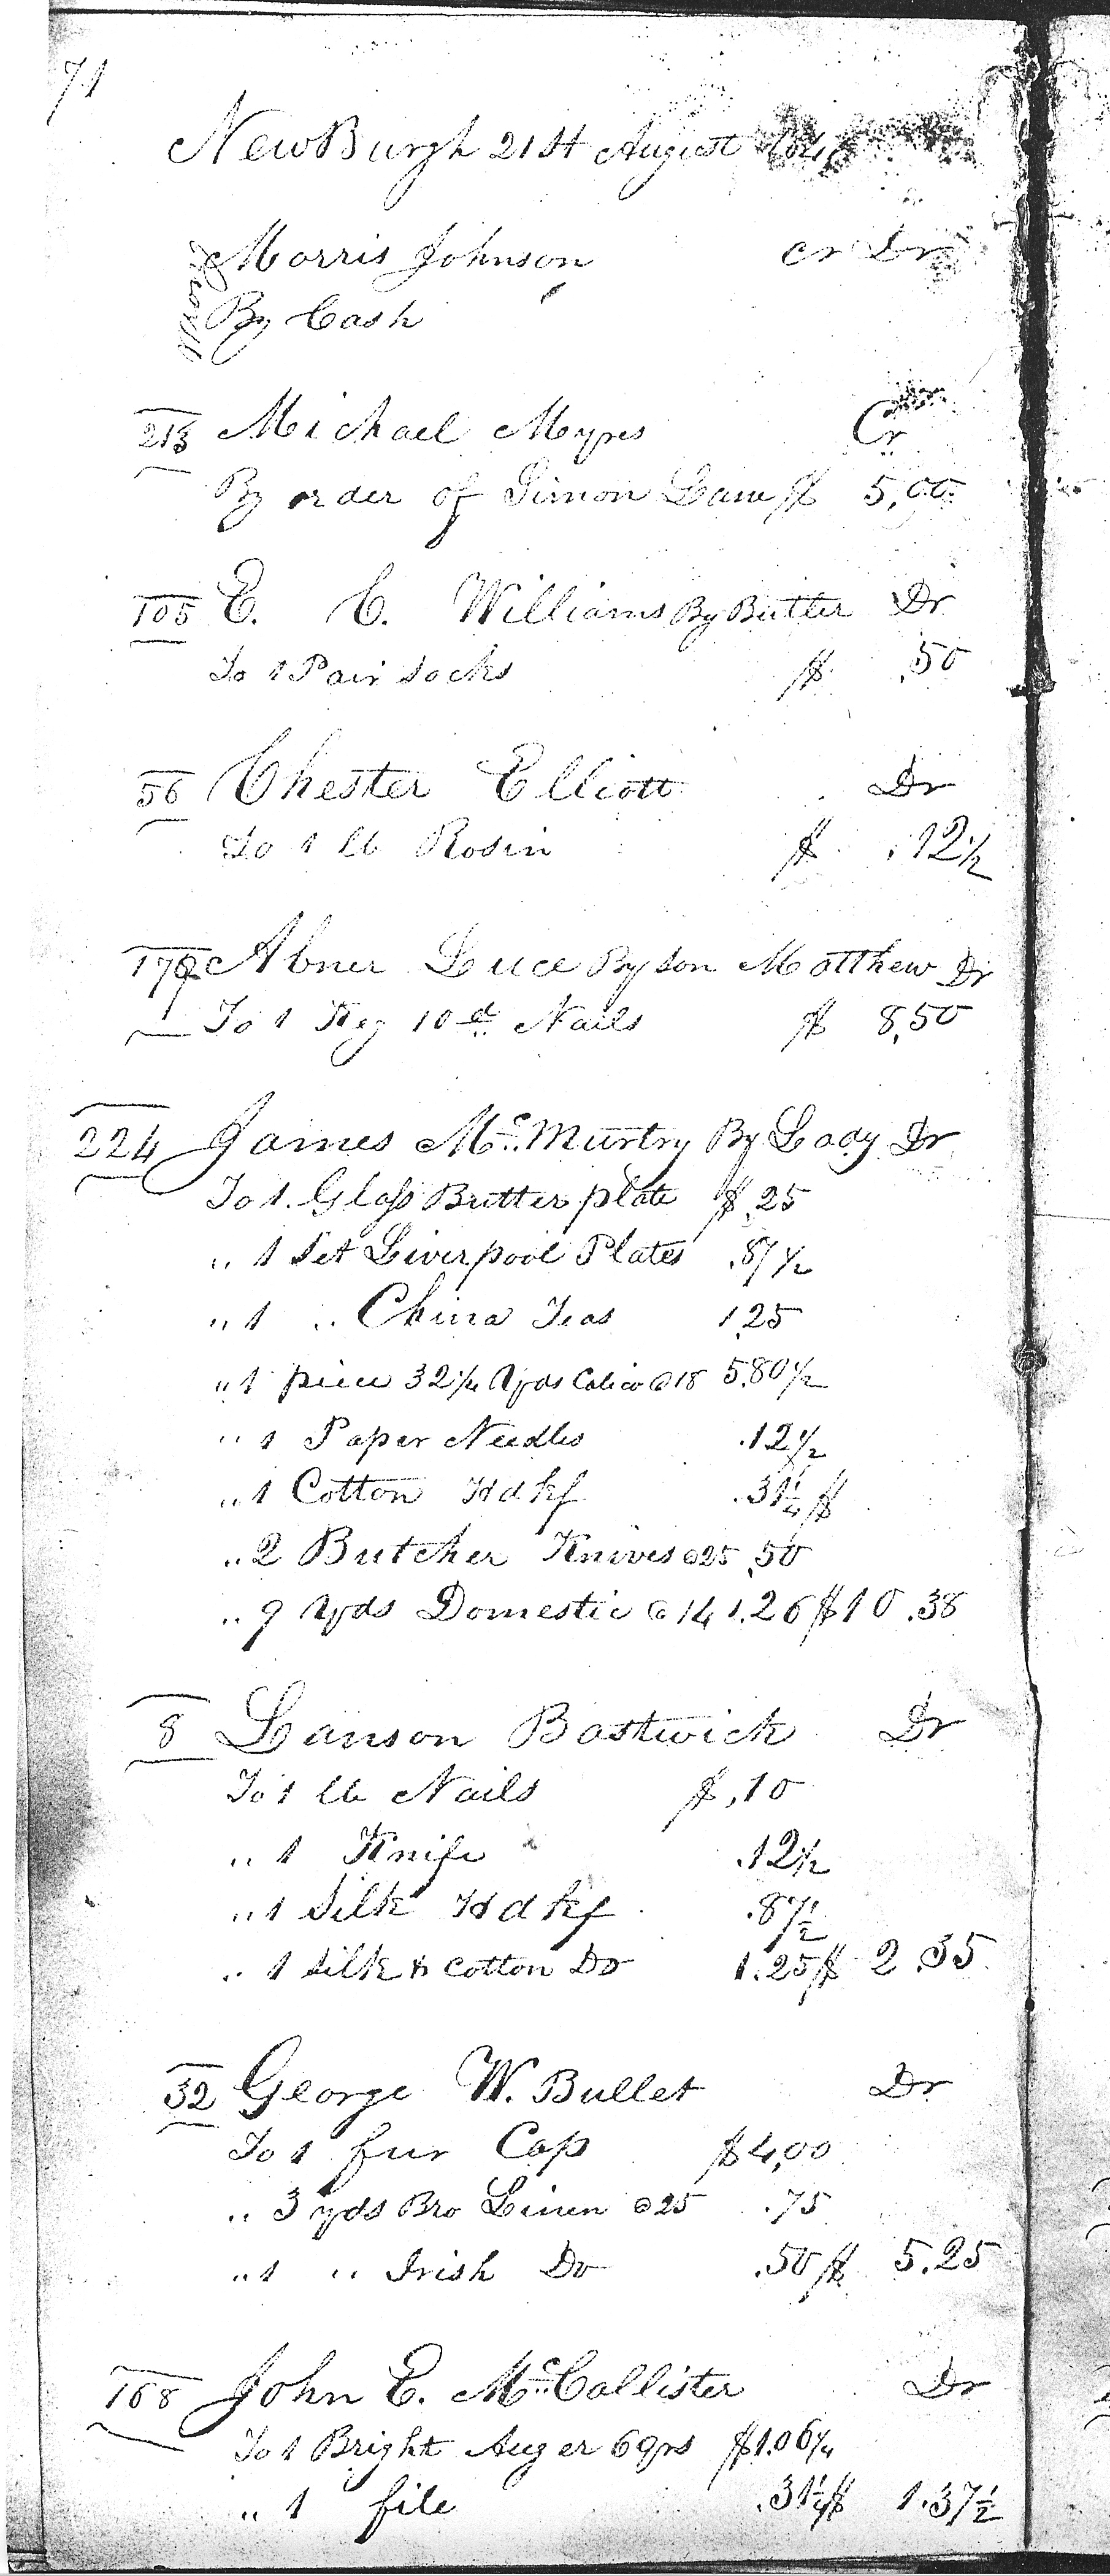 71
NewBurgh 21st August
Morris Johnson cr Dr
By Cash
213 Michael Myres Cr
By order of Simon Lane $ 5,00
105 E. C. Williams By Butler Dr
To 1 Pair Socks $ .50
56 Chester Elliott Dr
To 1 lb Rosin $ .12 1/2
179 Abner Luce By Son Matthew Dr
To 1 Keg 10d Nails $ 8,50
224 James Mc Murtry By Lady Dr
To 1 Glass Butter plate $ .25
" 1 Set Liverpool Plates .87 1/2
" 1 " China Teas 1.25
" 1 piece 32 1/4 Yds Calico @ 18 5.80 1/2
" 1 Paper Needles .12 1/2
" 1 Cotton Hdkf .31 1/4 $
" 2 Butcher Knives @ 25 .50
" 9 Yds Domestic @ 14 1.26 $ 10.38
8 Lanson Bostwick Dr
To 1 lb Nails $ .10
" 1 Knife .12 1/2
" 1 Silk Hdkf .87 1/2
" 1 Silk & Cotton Do 1.25 $ 2.35
32 George W. Bullet Dr
To 1 fur Cap $ 4,00
" 3 yds Bro Linen @ 25 .75
" 1 " Irish Do .50 $ 5.25
168 John E. Mc Callister Dr
To 1 Bright Auger 6 qrs $ 1.06 1/4
" 1 file .31 1/4 $ 1.37 1/2